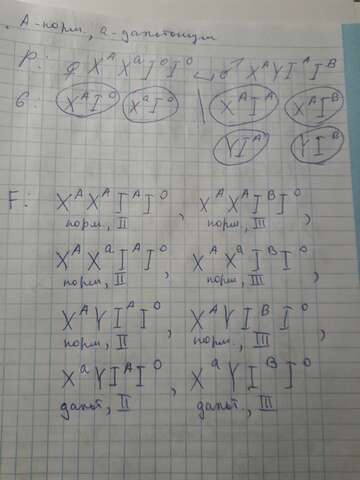 A-норм., a-дальтонизм
P: ♀ XᴬXᵃIᴼIᴼ ♂ XᴬYIᴬIᴮ
G: XᴬIᴼ XᵃIᴼ | XᴬIᴬ XᴬIᴮ
YIᴬ YIᴮ
F: XᴬXᴬIᴬIᴼ, XᴬXᴬIᴮIᴼ,
норм., II норм., III
XᴬXᵃIᴬIᴼ, XᴬXᵃIᴮIᴼ,
норм., II норм., III
XᴬYIᴬIᴼ, XᴬYIᴮIᴼ,
норм., II норм., III
XᵃYIᴬIᴼ, XᵃYIᴮIᴼ
дальт., II дальт., III